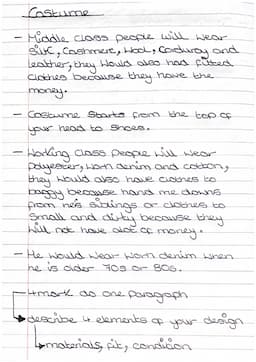 Costume
- Middle class people will wear
silk, Cashmere, Wool, Corduroy and
leather, they would also had fitted
clothes because they have the
money.
- Costume starts from the top of
your head to shoes.
- Working class people will wear
polyester, worn denim and cotton,
they would also have clothes to
baggy because hand me downs
from he's siblings or clothes to
small and dirty because they
will not have alot of money.
- He would wear worn denim when
he is older 70s or 80s.
4 mark do one paragraph
describe 4 elements of your design
materials, fit, condition